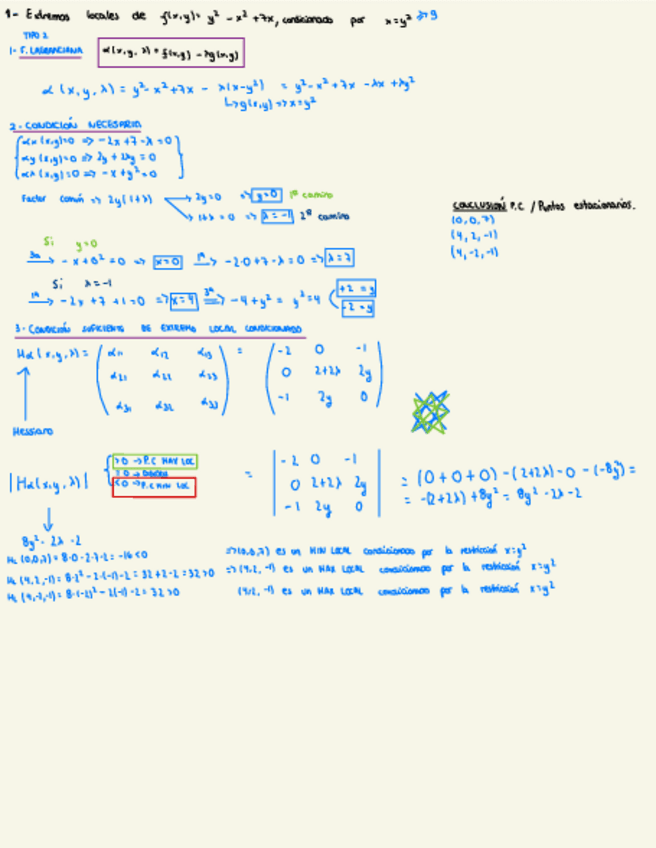 1- Extremos locales de f(x,y)= y² - x² + 7x, condicionado por x=y² => g
TIPO 2
1- F. LAGRANGIANA α(x,y,λ) = f(x,y) - λg(x,y)
α(x,y,λ) = y² - x² + 7x - λ(x-y²) = y² - x² + 7x - λx + λy²
↳ g(x,y) => x=y²
2- CONDICIÓN NECESARIA
αx(x,y)=0 => -2x+7-λ=0
αy(x,y)=0 => 2y+2λy=0
αλ(x,y)=0 => -x+y²=0
Factor común => 2y(1+λ) → 2y=0 => y=0 1º camino
→ 1+λ=0 => λ=-1 2º camino
CONCLUSIÓN P.C / Puntos estacionarios.
(0,0,7)
(4,2,-1)
(4,-2,-1)
Si y=0
3ª → -x+0²=0 => x=0 1ª → -2·0+7-λ=0 => λ=7
Si λ=-1
1ª → -2x+7+1=0 => x=4 3ª => -4+y²= y²=4 +2=y
-2=y
3- CONDICIÓN SUFICIENTE DE EXTREMO LOCAL CONDICIONADO
Hα(x,y,λ) = ( α11 α12 α13 = ( -2 0 -1
α21 α22 α23 0 2+2λ 2y
α31 α32 α33 ) -1 2y 0 )
Hessiano
|Hα(x,y,λ)| >0 → P.C MAX LOC
=0 → DUDOSO
<0 → P.C MIN LOC
= | -2 0 -1
0 2+2λ 2y
-1 2y 0 |
= (0+0+0) - (2+2λ) - 0 - (-8y²) =
= -(2+2λ) + 8y² = 8y² - 2λ - 2
8y² - 2λ - 2
H₂(0,0,7) = 8·0 - 2·7 - 2 = -16 < 0 => (0,0,7) es un MIN LOCAL condicionado por la restricción x=y²
H₂(4,2,-1) = 8·2² - 2·(-1) - 2 = 32+2-2 = 32 > 0 => (4,2,-1) es un MAX LOCAL condicionado por la restricción x=y²
H₂(4,-2,-1) = 8·(-2)² - 2(-1) - 2 = 32 > 0 (4,2,-1) es un MAX LOCAL condicionado por la restricción x=y²